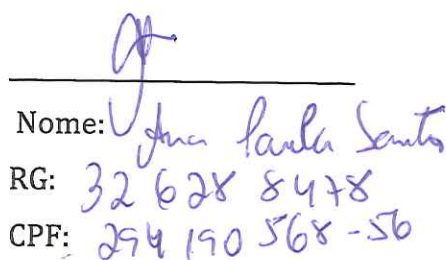 Nome: Ana Paula Santos
RG: 32 628 8478
CPF: 294 190 568-56